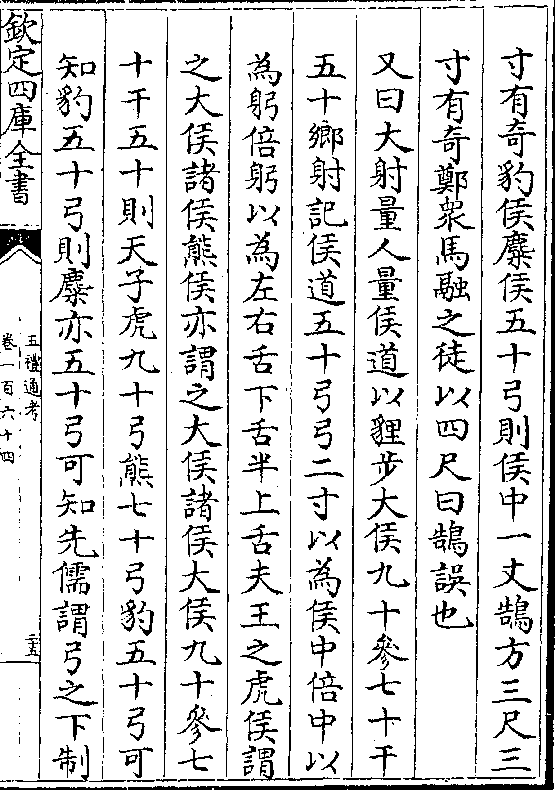 寸有奇豹侯麋侯五十弓則侯中一丈鵠方三尺三
寸有奇鄭衆馬融之徒以四尺曰鵠誤也
又曰大射量人量侯道以貍步大侯九十參七十干
五十鄉射記侯道五十弓弓二寸以為侯中倍中以
為躬倍躬以為左右舌下舌半上舌夫王之虎侯謂
之大侯諸侯熊侯亦謂之大侯諸侯大侯九十參七
十干五十則天子虎九十弓熊七十弓豹五十弓可
知豹五十弓則麋亦五十弓可知先儒謂弓之下制
欽定四庫全書
五禮通考
卷一百六十四
二十五